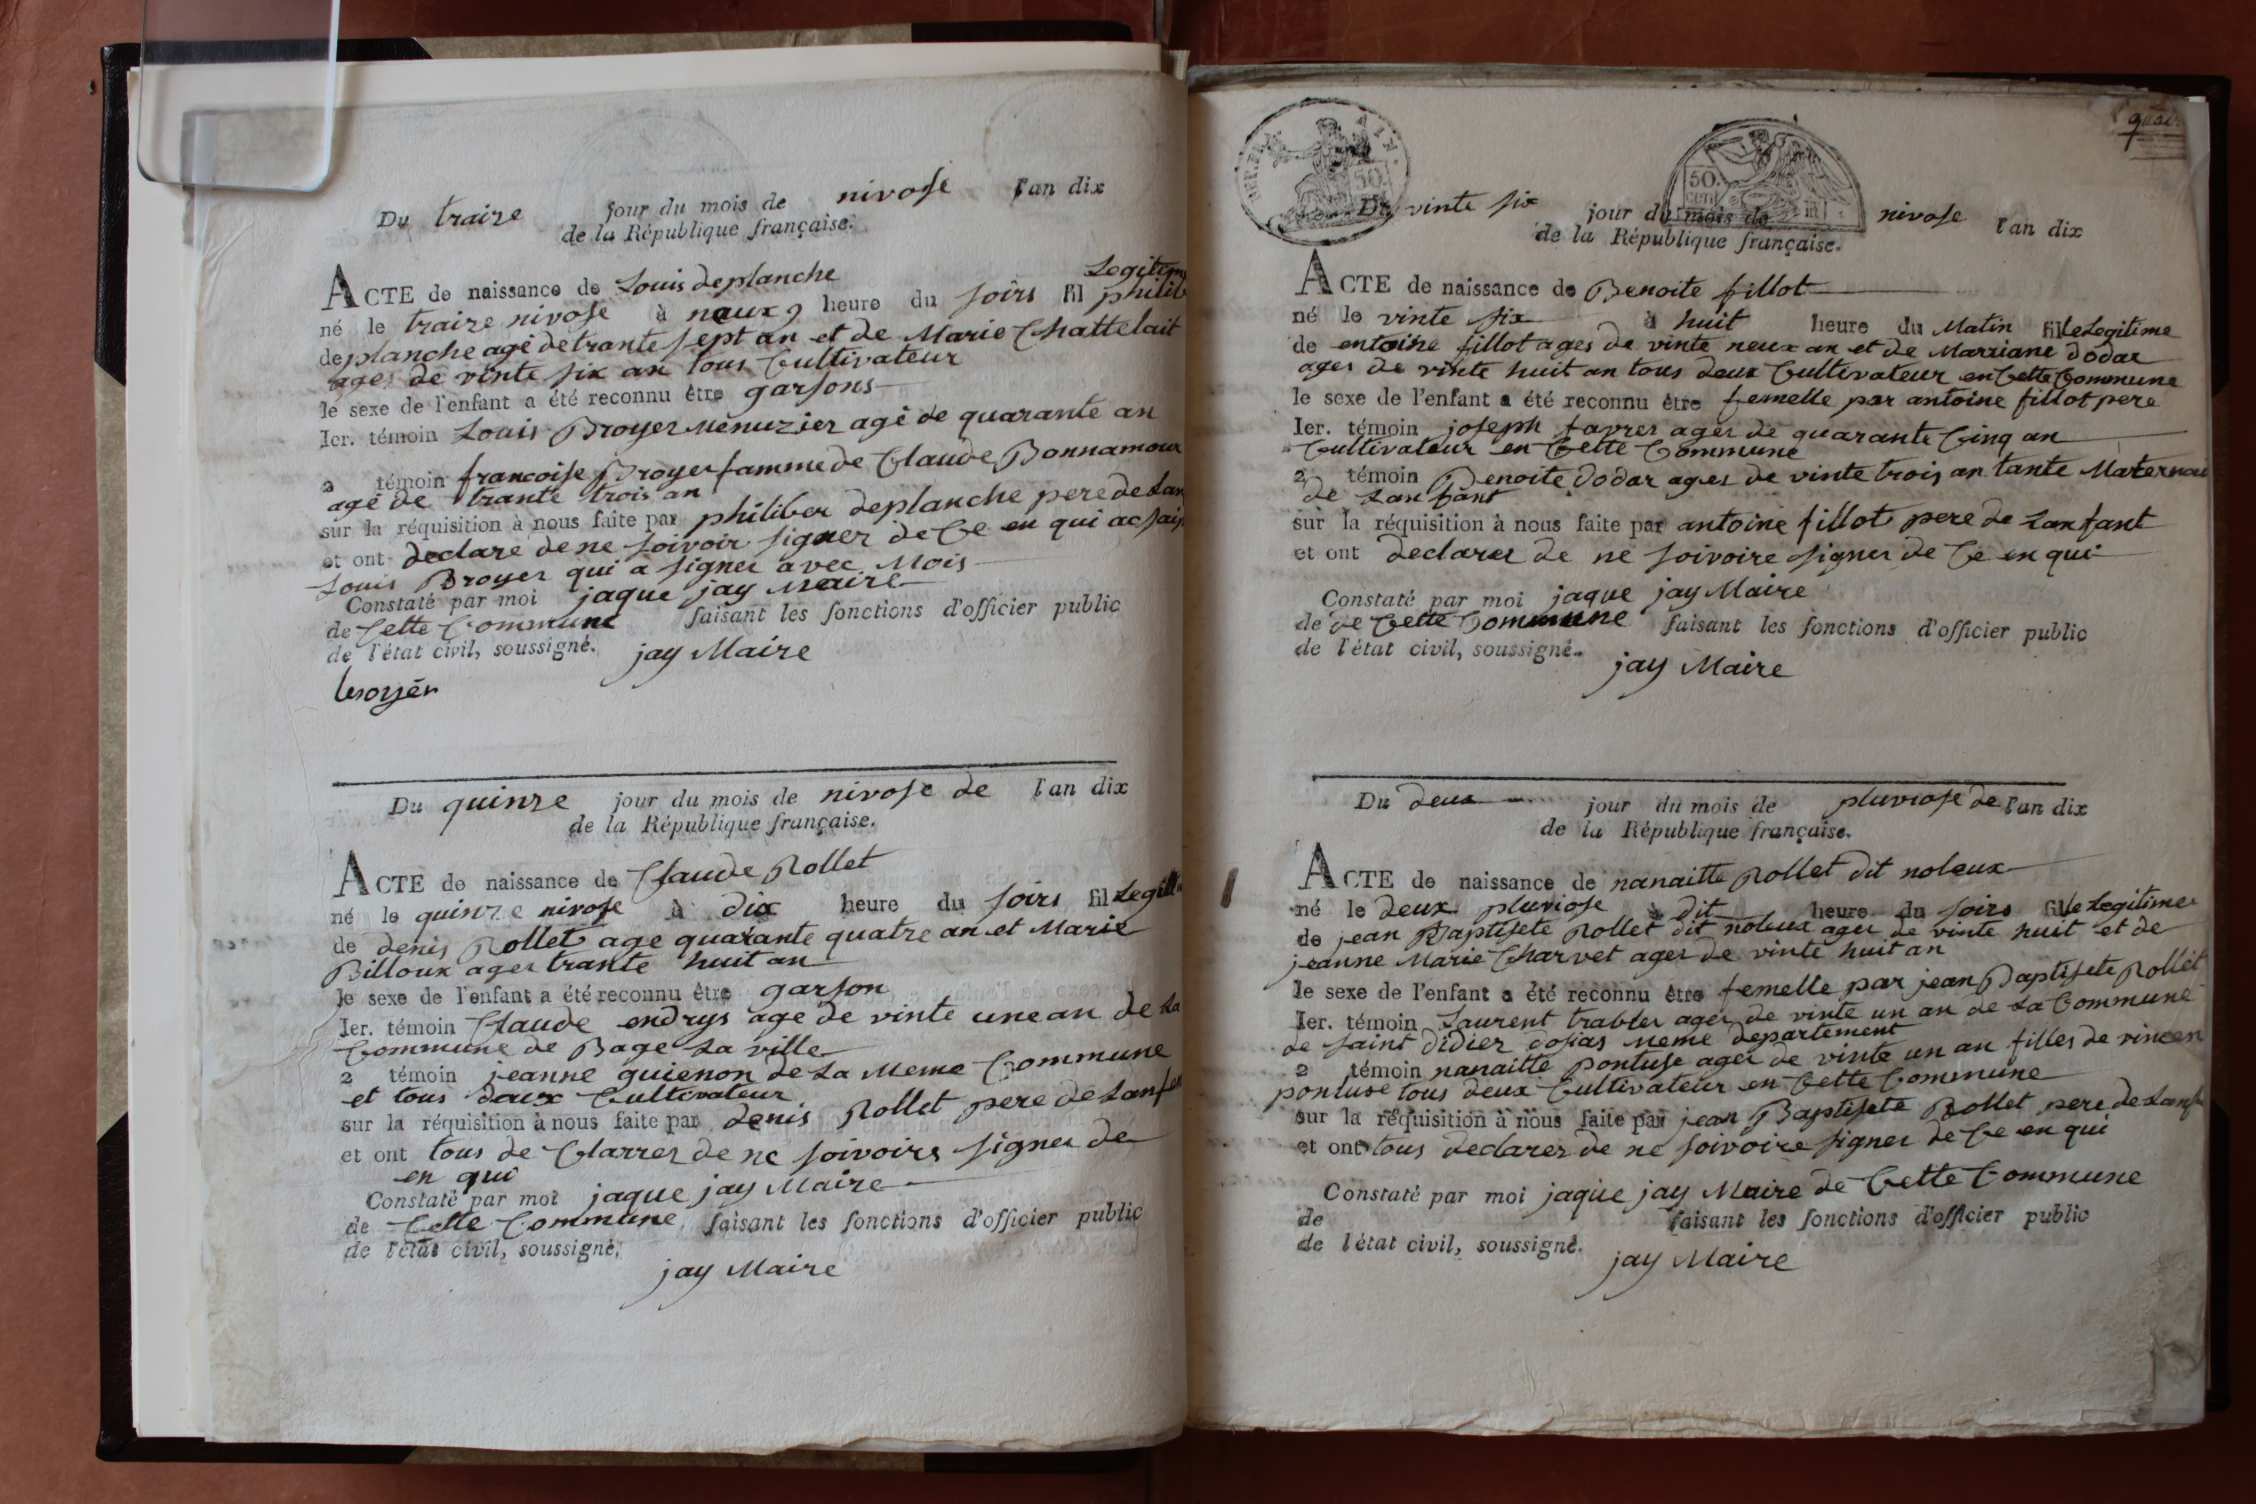 Du traize jour du mois de nivose l'an dix
de la République française.
ACTE de naissance de Louis deplanche
Legitime
né le traize nivose à neux heure du soirs fil philib
deplanche agé de trante sept an et de Marie Chattelait
ages de vinte six an tous Cultivateur
le sexe de l'enfant a été reconnu être garsons
Ier. témoin Louis Broyer menuzier agé de quarante an
2 témoin francoise Broyer famme de Claude Bonnamour
agé de trante trois an
sur la réquisition à nous faite par philiber deplanche pere de Lan
et ont declare de ne soivoir signer de Ce en qui
Louis Broyer qui a signer avec Mois
Constaté par moi jaque jay Maire
de Cette Commune faisant les fonctions d'officier public
de l'état civil, soussigné. jay Maire
broyer
Du quinze jour du mois de nivose de l'an dix
de la République française.
ACTE de naissance de Claude Rollet
né le quinze nivose à dix heure du soirs fil Legiti
de denis Rollet age quarante quatre an et Marie
Billoux ages trante huit an
le sexe de l'enfant a été reconnu être garson
Ier. témoin Claude endrys age de vinte une an de La
Commune de Bage La ville
2 témoin jeanne guienon de La Meme Commune
et tous deux Cultivateur
sur la réquisition à nous faite par denis Rollet pere de Lanfen
et ont tous de Clarrer de ne soivoirs signer de
en qui
Constaté par moi jaque jay Maire
de Cette Commune faisant les fonctions d'officier public
de l'état civil, soussigné.
jay Maire
quatr
50 cent
Du vinte six jour du mois de nivose l'an dix
de la République française.
ACTE de naissance de Benoite fillot
né le vinte six à huit heure du Matin fille Legitime
de entoine fillot ages de vinte neux an et de Marriane dodar
ages de vinte huit an tous deux Cultivateur en Cette Commune
le sexe de l'enfant a été reconnu être femelle par antoine fillot pere
Ier. témoin joseph favrer ages de quarante Cinq an
Cultivateur en Cette Commune
2 témoin Benoite dodar ages de vinte trois an tante Maternai
de Lanfant
sur la réquisition à nous faite par antoine fillot pere de Lanfant
et ont declarer de ne soivoire signer de Ce en qui
Constaté par moi jaque jay Maire
de de Cette Commune faisant les fonctions d'officier public
de l'état civil, soussigné.
jay Maire
Du deux jour du mois de pluviose de l'an dix
de la République française.
ACTE de naissance de nanaitte Rollet dit noleux
né le deux pluviose à dit heure du soirs fille Legitimes
de jean Baptisete Rollet dit noleux ages de vinte huit et de
jeanne Marie Charvet ages de vinte huit an
le sexe de l'enfant a été reconnu être femelle par jean Baptisete Rollet
Ier. témoin Laurent trabler ages de vinte un an de La Commune
de saint didier dosias Meme departement
2 témoin nanaitte pontuse ages de vinte un an filles de vincen
pontuse tous deux Cultivateur en Cette Commune
sur la réquisition à nous faite par jean Baptisete Rollet pere de Lanfa
et ont tous declarer de ne soivoire signer de Ce en qui
Constaté par moi jaque jay Maire de Cette Commune
de faisant les fonctions d'officier public
de l'état civil, soussigné.
jay Maire